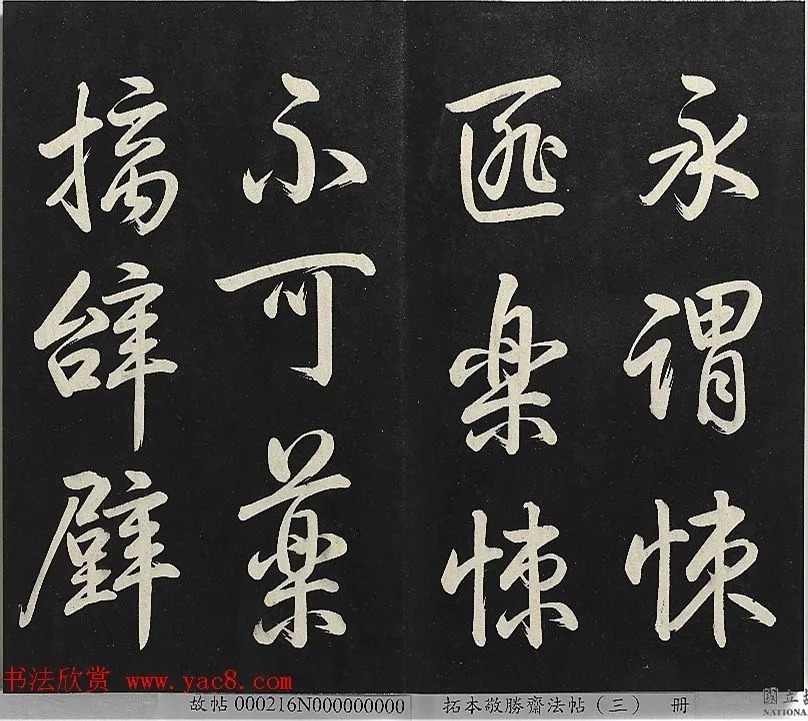 永謂悚
匪樂悚
不可藥
摛辝
书法欣赏 www.yac8.com
故帖 000216N000000000 拓本敬勝齋法帖（三） 册
國立
NATIONA